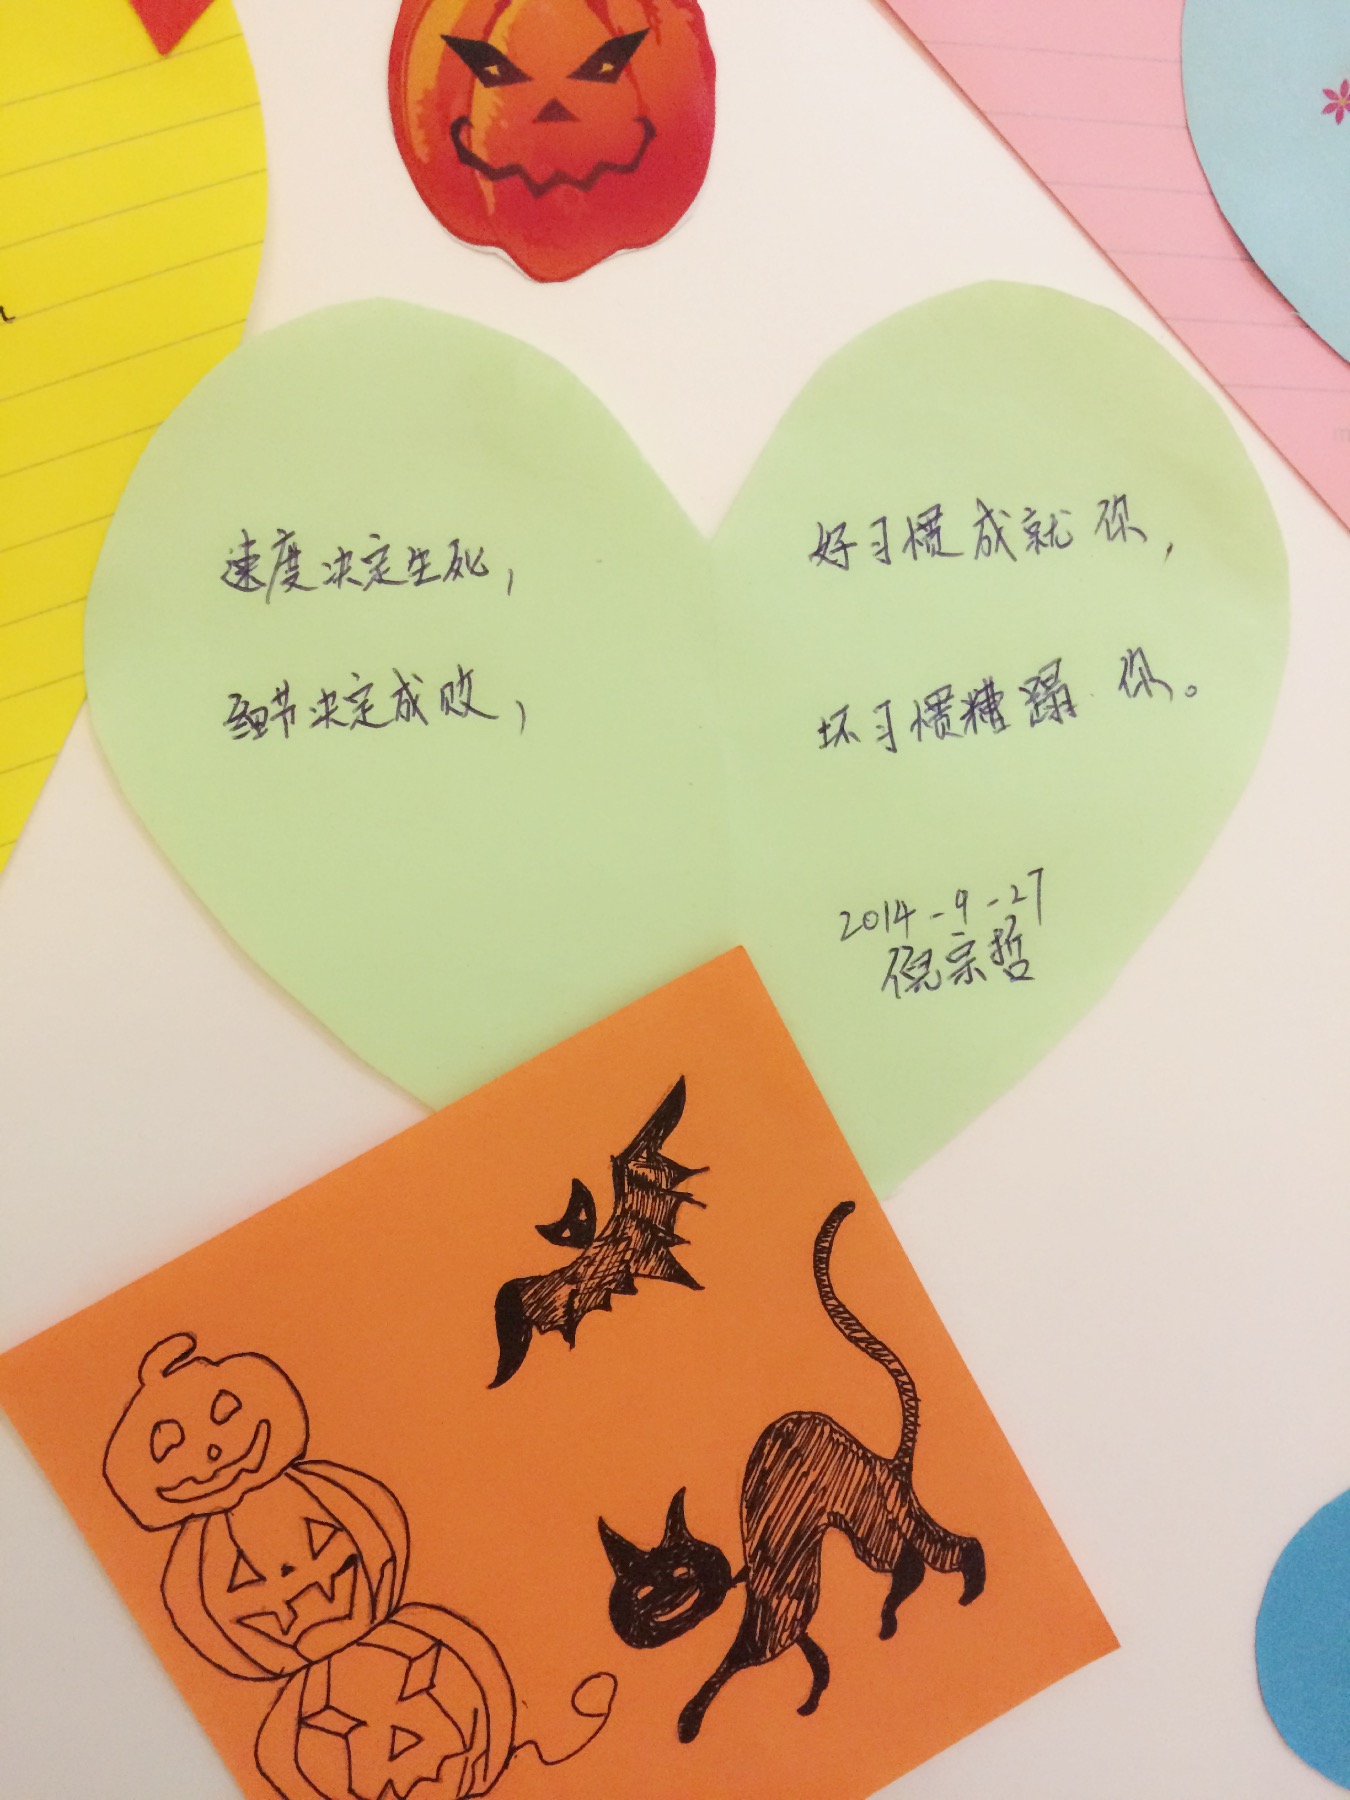 速度决定生死，
细节决定成败，
好习惯成就你，
坏习惯糟蹋你。
2014-9-27
倪宗哲